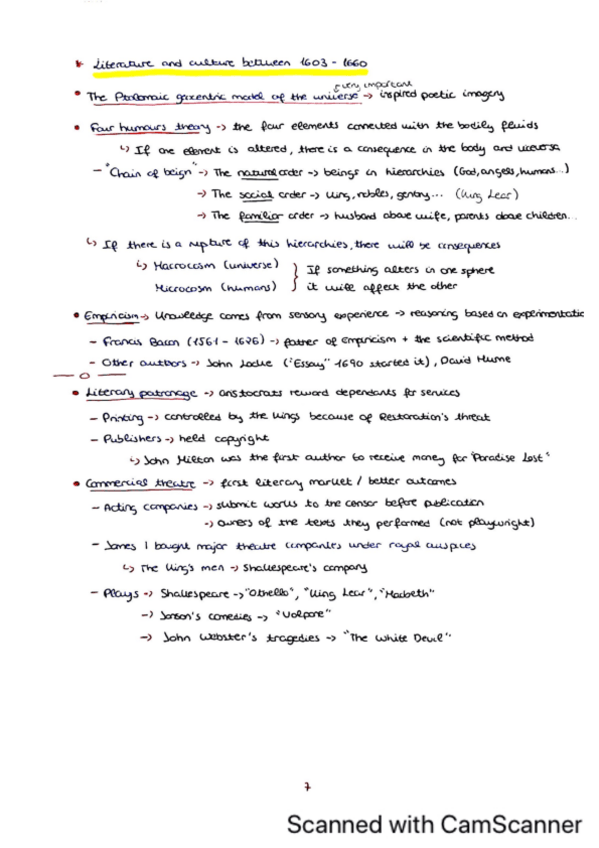 * Literature and culture between 1603 - 1660
very important
• The Ptolomaic geocentric model of the universe -> inspired poetic imagery
• Four humours theory -> the four elements connected with the bodily fluids
↳ If one element is altered, there is a consequence in the body and viceversa
- "Chain of beign" -> The natural order -> beings in hierarchies (God, angels, humans...)
-> The social order -> king, nobles, gentry... (King Lear)
-> The familiar order -> husband above wife, parents above children...
↳ If there is a rupture of this hierarchies, there will be consequences
↳ Macrocosm (universe) } If something alters in one sphere
Microcosm (humans) } it will affect the other
• Empiricism -> knowledge comes from sensory experience -> reasoning based on experimentatio
- Francis Bacon (1561 - 1626) -> father of empiricism + the scientific method
- Other authors -> John Locke ("Essay" 1690 started it), David Hume
• Literary patronage -> aristocrats reward dependants for services
- Printing -> controlled by the kings because of Restoration's threat
- Publishers -> held copyright
↳ John Milton was the first author to receive money for "Paradise Lost"
• Commercial theatre -> first literary market / better outcomes
- Acting companies -> submit works to the censor before publication
-> owners of the texts they performed (not playwright)
- James I bought major theatre companies under royal auspices
↳ The king's men -> Shakespeare's company
- Plays -> Shakespeare -> "Othello", "King Lear", "Macbeth"
-> Jonson's comedies -> "Volpone"
-> John Webster's tragedies -> "The White Devil"
7
Scanned with CamScanner